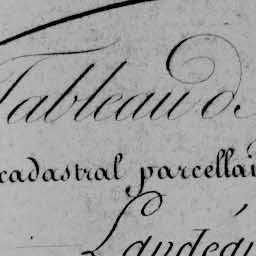 Tableau d
cadastral parcellai
Landéa